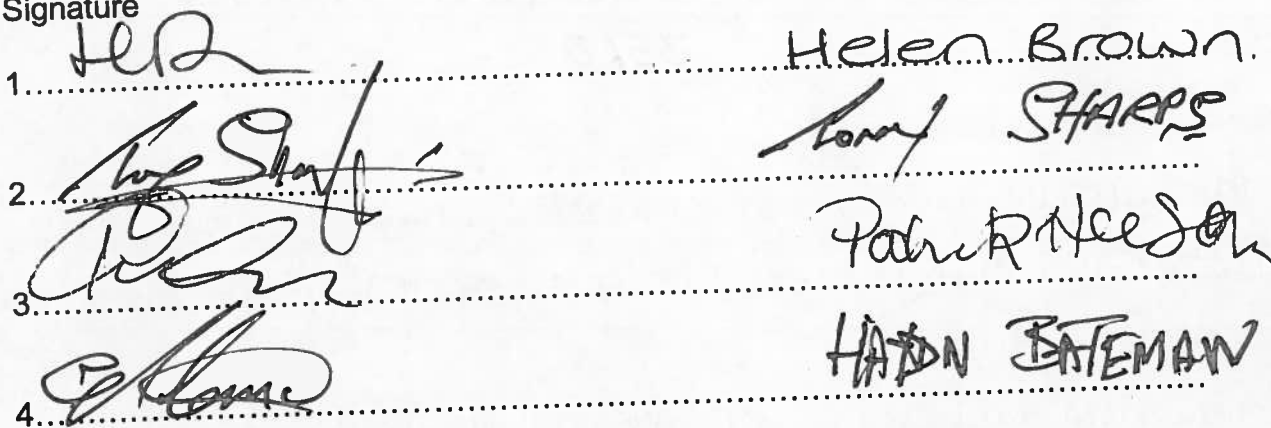 Signature
1. HB Helen Brown.
2. Tony Sharps Tony SHARPS
3. Patrick Heesom
4. HAYDN BATEMAN